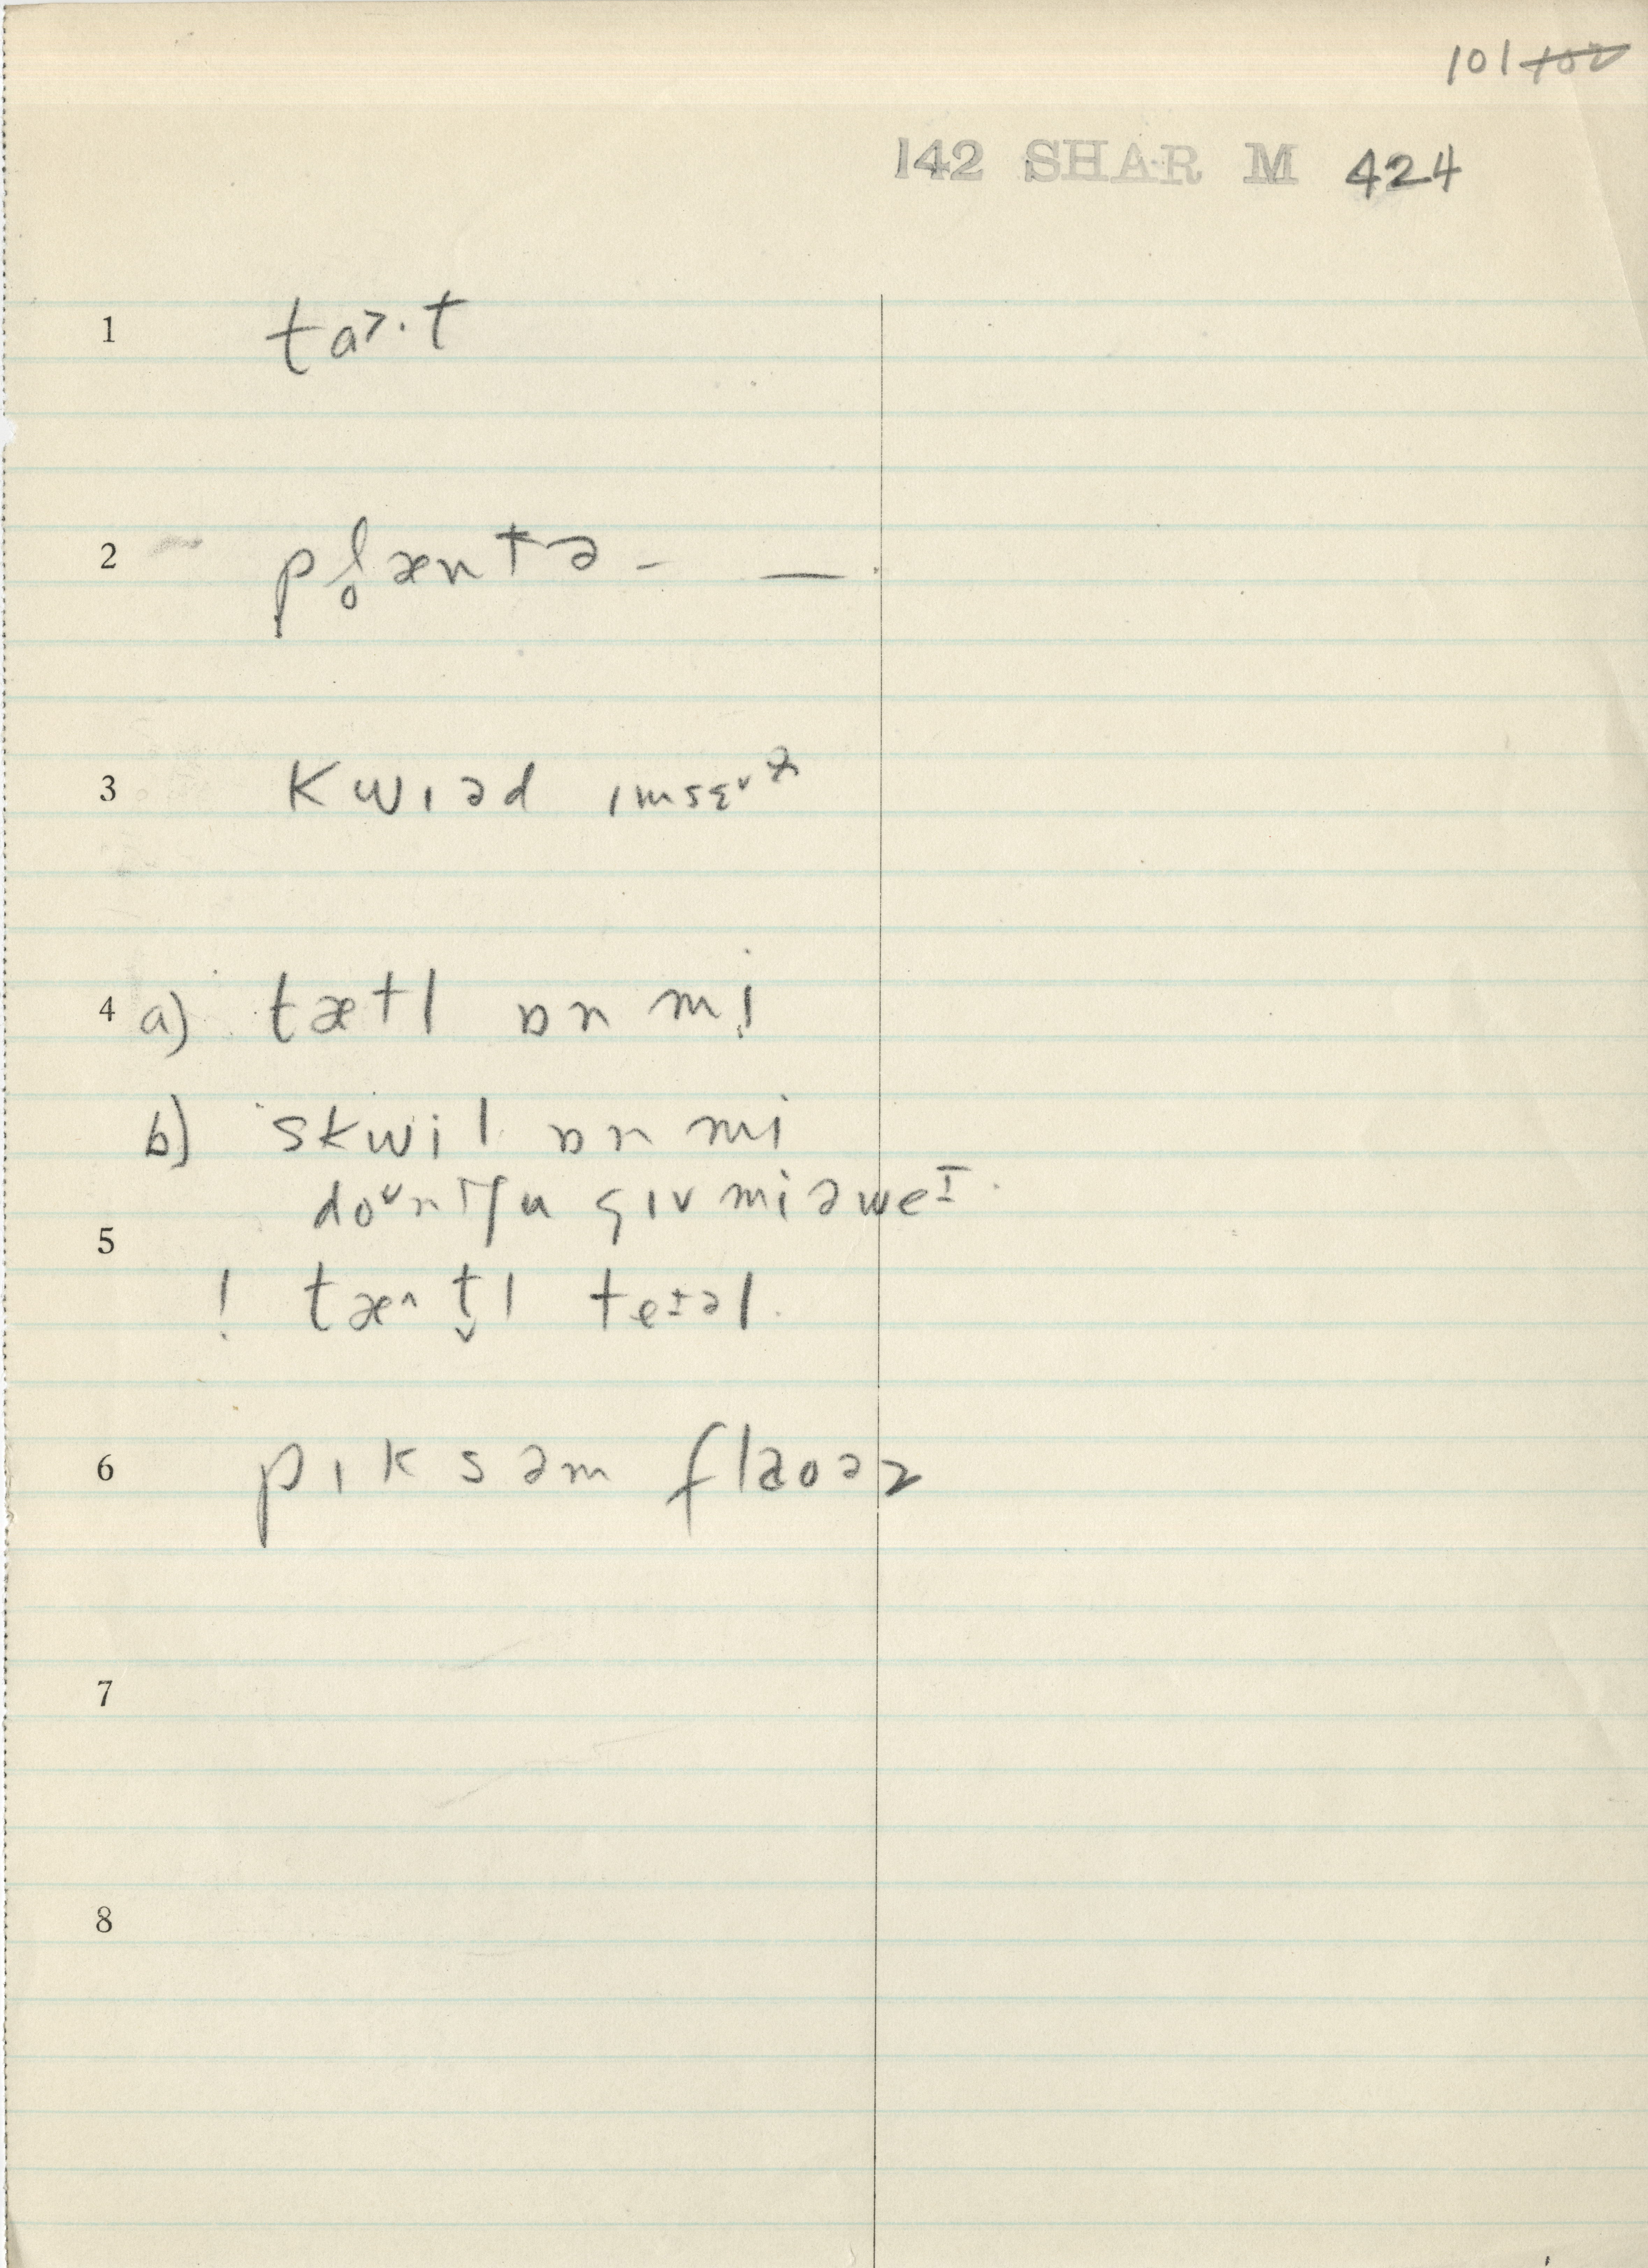 101 102
142 SHAR M 424
1 ta>·t
2 pl̥æntə- —
3 kwiəd ɪmsɛᵛ
4 a) tætl ɒn mi̞
b) skwil ɒn mi
doᵛnt ju gɪv mi əweɪ
5
! tæ^ t̬l teɪəl
6 pɪk səm flaoəz
7
8